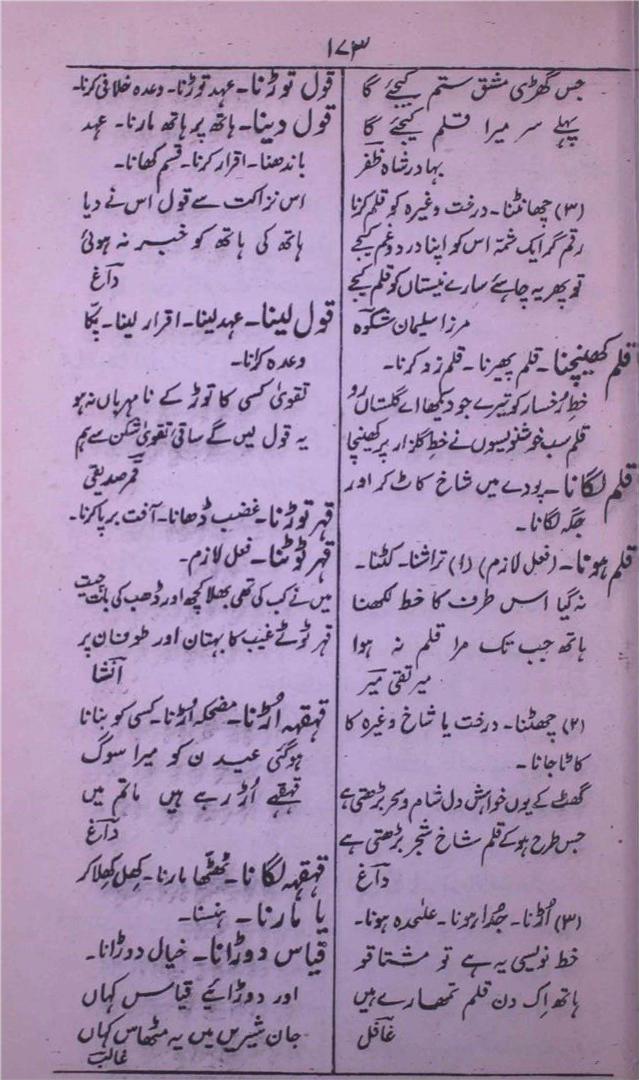 ۱۷۳
جس گھڑی مشق ستم کیجئے گا
پہلے سر میرا قلم کیجئے گا
بہادر شاہ ظفر
(۳) چھانٹنا۔ درخت وغیرہ کو قلم کرنا
رقم گر ایک شمّہ اس کو اپنا درد و غم کیجے
تو پھر یہ چاہئے سارے نیستاں کو قلم کیجے
مرزا سلیمان شکوہ
قلم کھینچنا۔ قلم پھیرنا۔ قلم زد کرنا۔
خطِ رخسار کو تیرے جو دیکھا اے گلستاں رو
قلم سب خوشنویسوں نے خطِ گلزار پر کھینچا
قلم لگانا۔ پودے میں شاخ کاٹ کر اور
جگہ لگانا۔
قلم ہونا۔ (فعل لازم) (۱) تراشنا۔ کٹنا۔
نہ گیا اس طرف کا خط لکھنا
ہاتھ جب تک مرا قلم نہ ہوا
میر تقی میر
(۲) چھٹنا۔ درخت یا شاخ وغیرہ کا
کاٹا جانا۔
گھٹ کے یوں خواہش دل شام و سحر بڑھتی ہے
جس طرح ہو کے قلم شاخ شجر بڑھتی ہے
داغ
(۳) اُڑنا۔ جدا ہونا۔ علیٰحدہ ہونا۔
خط نویسی یہ ہے تو مشتاقو
ہاتھ اِک دن قلم تمھارے ہیں
غافل
قول توڑنا۔ عہد توڑنا۔ وعدہ خلافی کرنا۔
قول دینا۔ ہاتھ پر ہاتھ مارنا۔ عہد
باندھنا۔ اقرار کرنا۔ قسم کھانا۔
اس نزاکت سے قول اس نے دیا
ہاتھ کی ہاتھ کو خبر نہ ہوئی
داغ
قول لینا۔ عہد لینا۔ اقرار لینا۔ پکّا
وعدہ کرانا۔
تقویٰ کسی کا توڑ کے نا مہرباں نہ ہو
یہ قول لیں گے ساقی تقویٰ شکن سے ہم
قمر صدیقی
قہر توڑنا۔ غضب ڈھانا۔ آفت برپا کرنا۔
قہر ٹوٹنا۔ فعل لازم۔
میں نے کب کی تھی بھلا کچھ اور ڈھب کی بات چیت
قہر ٹوٹے غیب کا بہتان اور طوفان پر
انشا
قہقہہ اڑنا۔ مضحکہ اڑنا۔ کسی کو بنانا
ہو گئی عید ان کو میرا سوگ
قہقہے اُڑ رہے ہیں ماتم میں
داغ
قہقہہ لگانا۔ ٹھٹھا مارنا۔ کھل کھلا کر
یا مارنا۔ ہنسنا۔
قیاس دوڑانا۔ خیال دوڑانا۔
اور دوڑائیے قیاس کہاں
جان شیریں میں یہ مٹھاس کہاں
غالب